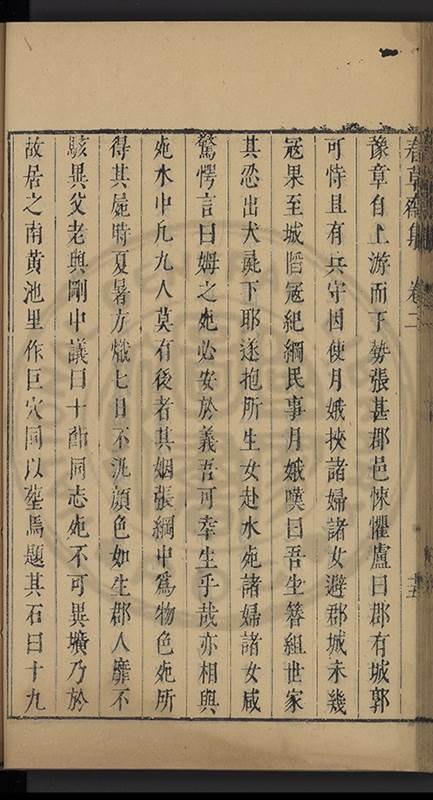 春草齋集 卷二
豫章自上游而下勢張甚郡邑悚懼盧曰郡有城郭
可恃且有兵守因使月娥挾諸婦諸女避郡城未幾
冦果至城陷冦紀綱民事月娥嘆曰吾生簪組世家
其忍出犬彘下耶遂抱所生女赴水死諸婦諸女咸
驚愕言曰姆之死必安於義吾可幸生乎哉亦相與
死水中凡九人莫有後者其姻張綱中為物色死所
得其屍時夏暑方熾七日不沉顔色如生郡人靡不
駭異父老與剛中議曰十節同志死不可異壙乃於
故居之南黃池里作巨穴同以塟焉題其石曰十九